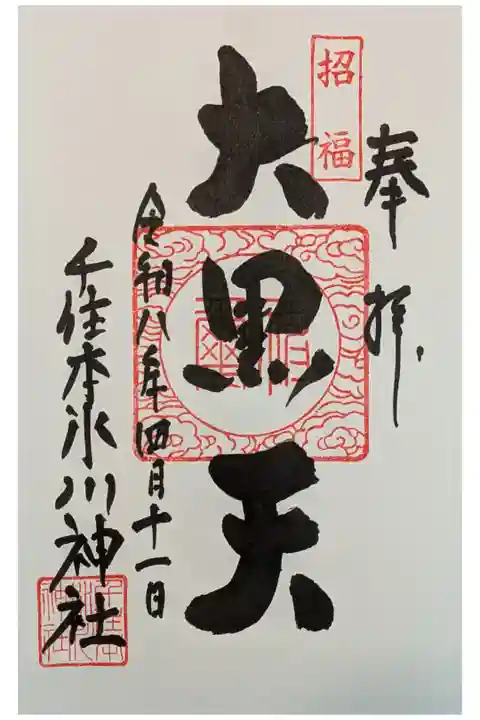 奉拝
招福
大黒天
令和八年四月十一日
千住本氷川神社